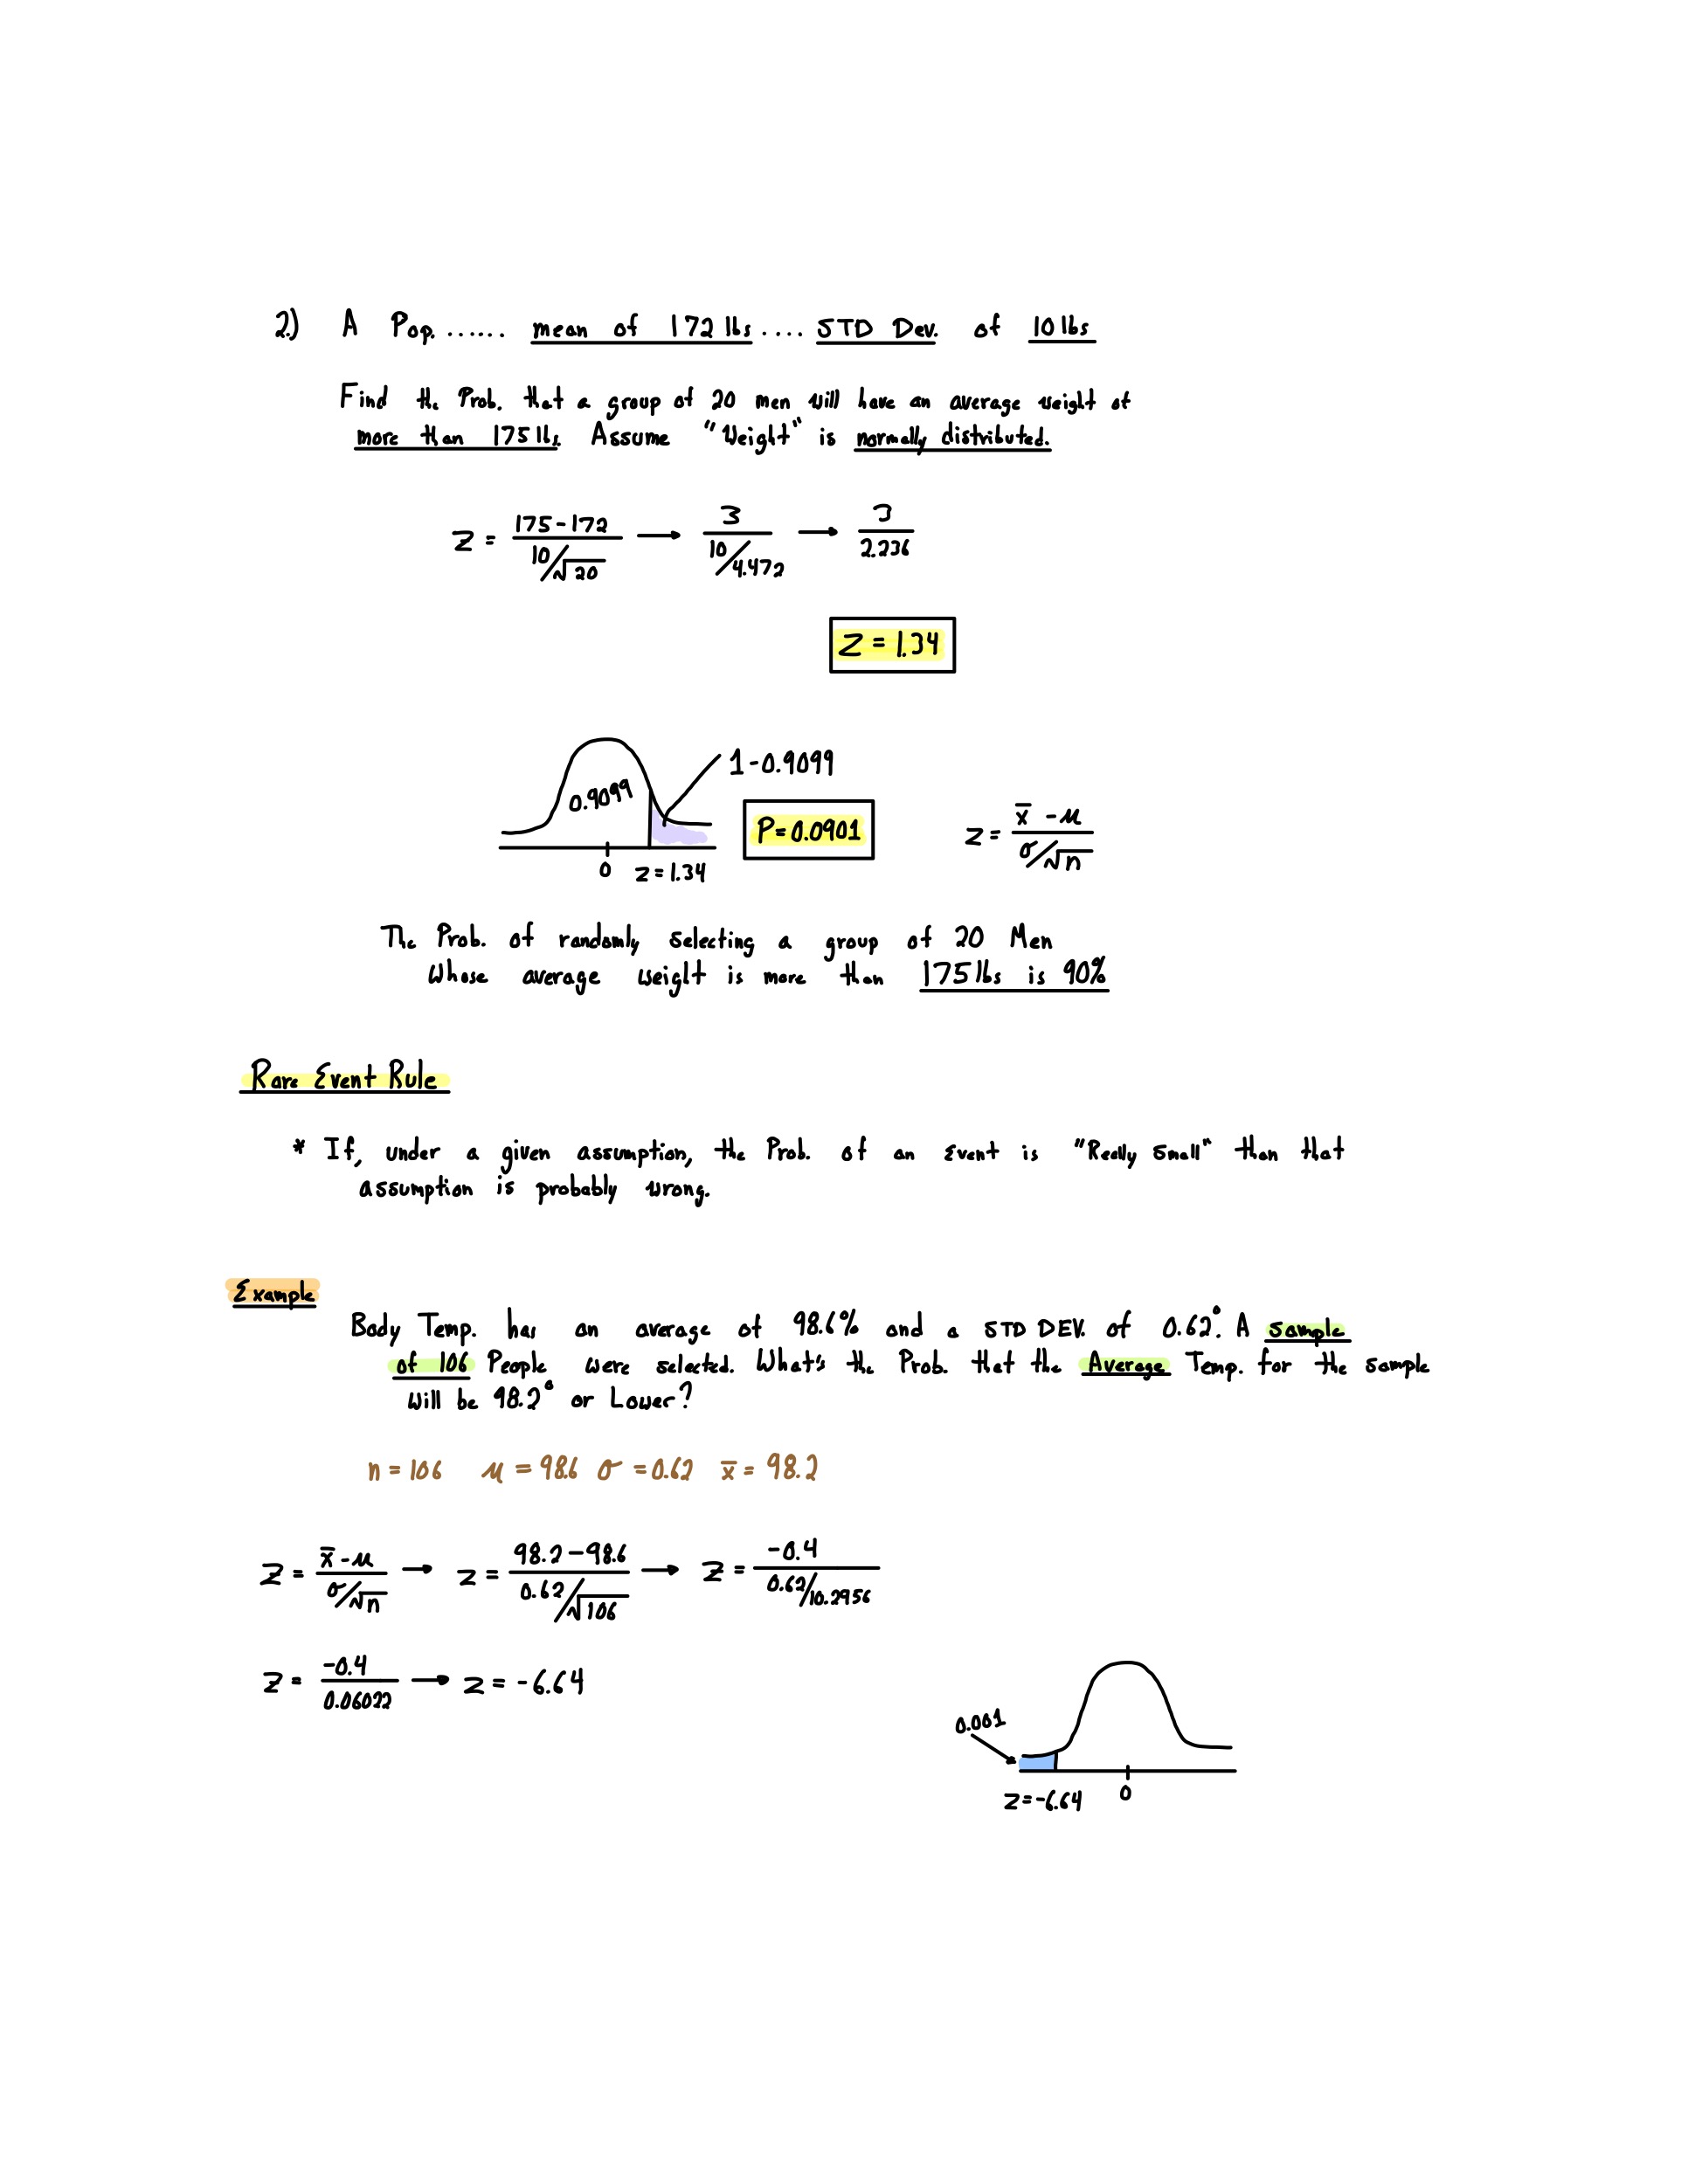 2.) A Pop. ...... mean of 172 lbs .... STD Dev. of 10 lbs
Find the Prob. that a group of 20 men will have an average weight of
more than 175 lbs. Assume "Weight" is normally distributed.
Z = (175-172)/(10/√20) → 3/(10/4.472) → 3/2.236
Z = 1.34
1-0.9099
0.9099
P=0.0901
z = (x̄ - μ)/(σ/√n)
0 z=1.34
The Prob. of randomly selecting a group of 20 Men
Whose average weight is more than 175 lbs is 90%
Rare Event Rule
* If, under a given assumption, the Prob. of an Event is "Really Small" than that
assumption is probably wrong.
Example
Body Temp. has an average of 98.6% and a STD DEV. of 0.62°. A sample
of 106 People were selected. What's the Prob. that the Average Temp. for the sample
will be 98.2° or Lower?
n = 106 μ = 98.6 σ = 0.62 x̄ = 98.2
Z = (x̄ - μ)/(σ/√n) → z = (98.2-98.6)/(0.62/√106) → Z = -0.4/(0.62/10.2956)
Z = -0.4/0.06022 → z = -6.64
0.001
z=-6.64 0